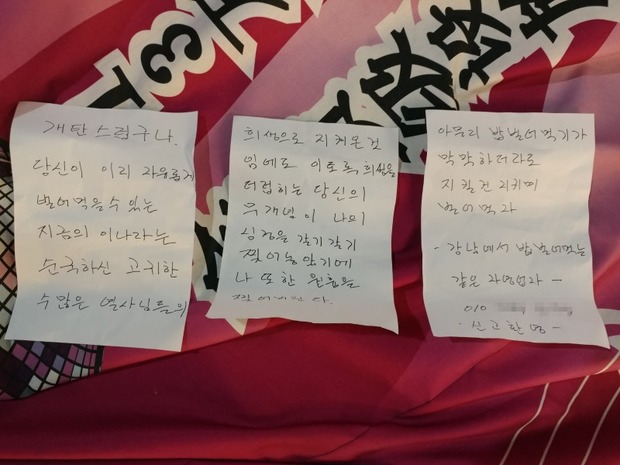 개탄스럽구나.
당신이 이리 자유롭게
벌어먹을수 있는
지금의 이나라는
순국하신 고귀한
수많은 열사님들의
희생으로 지켜온것
임에도 이토록, 희생을
더럽히는 당신의
무개념이 나의
심장을 갈기갈기
찢어놓았기에
나 또한 원흉을
찢어버린다.
아무리 밥벌어먹기가
막막하더라도
지킬건 지키며
벌어먹자
- 강남에서 밥벌어먹는
같은 자영업자 -
010
- 신고환영 -